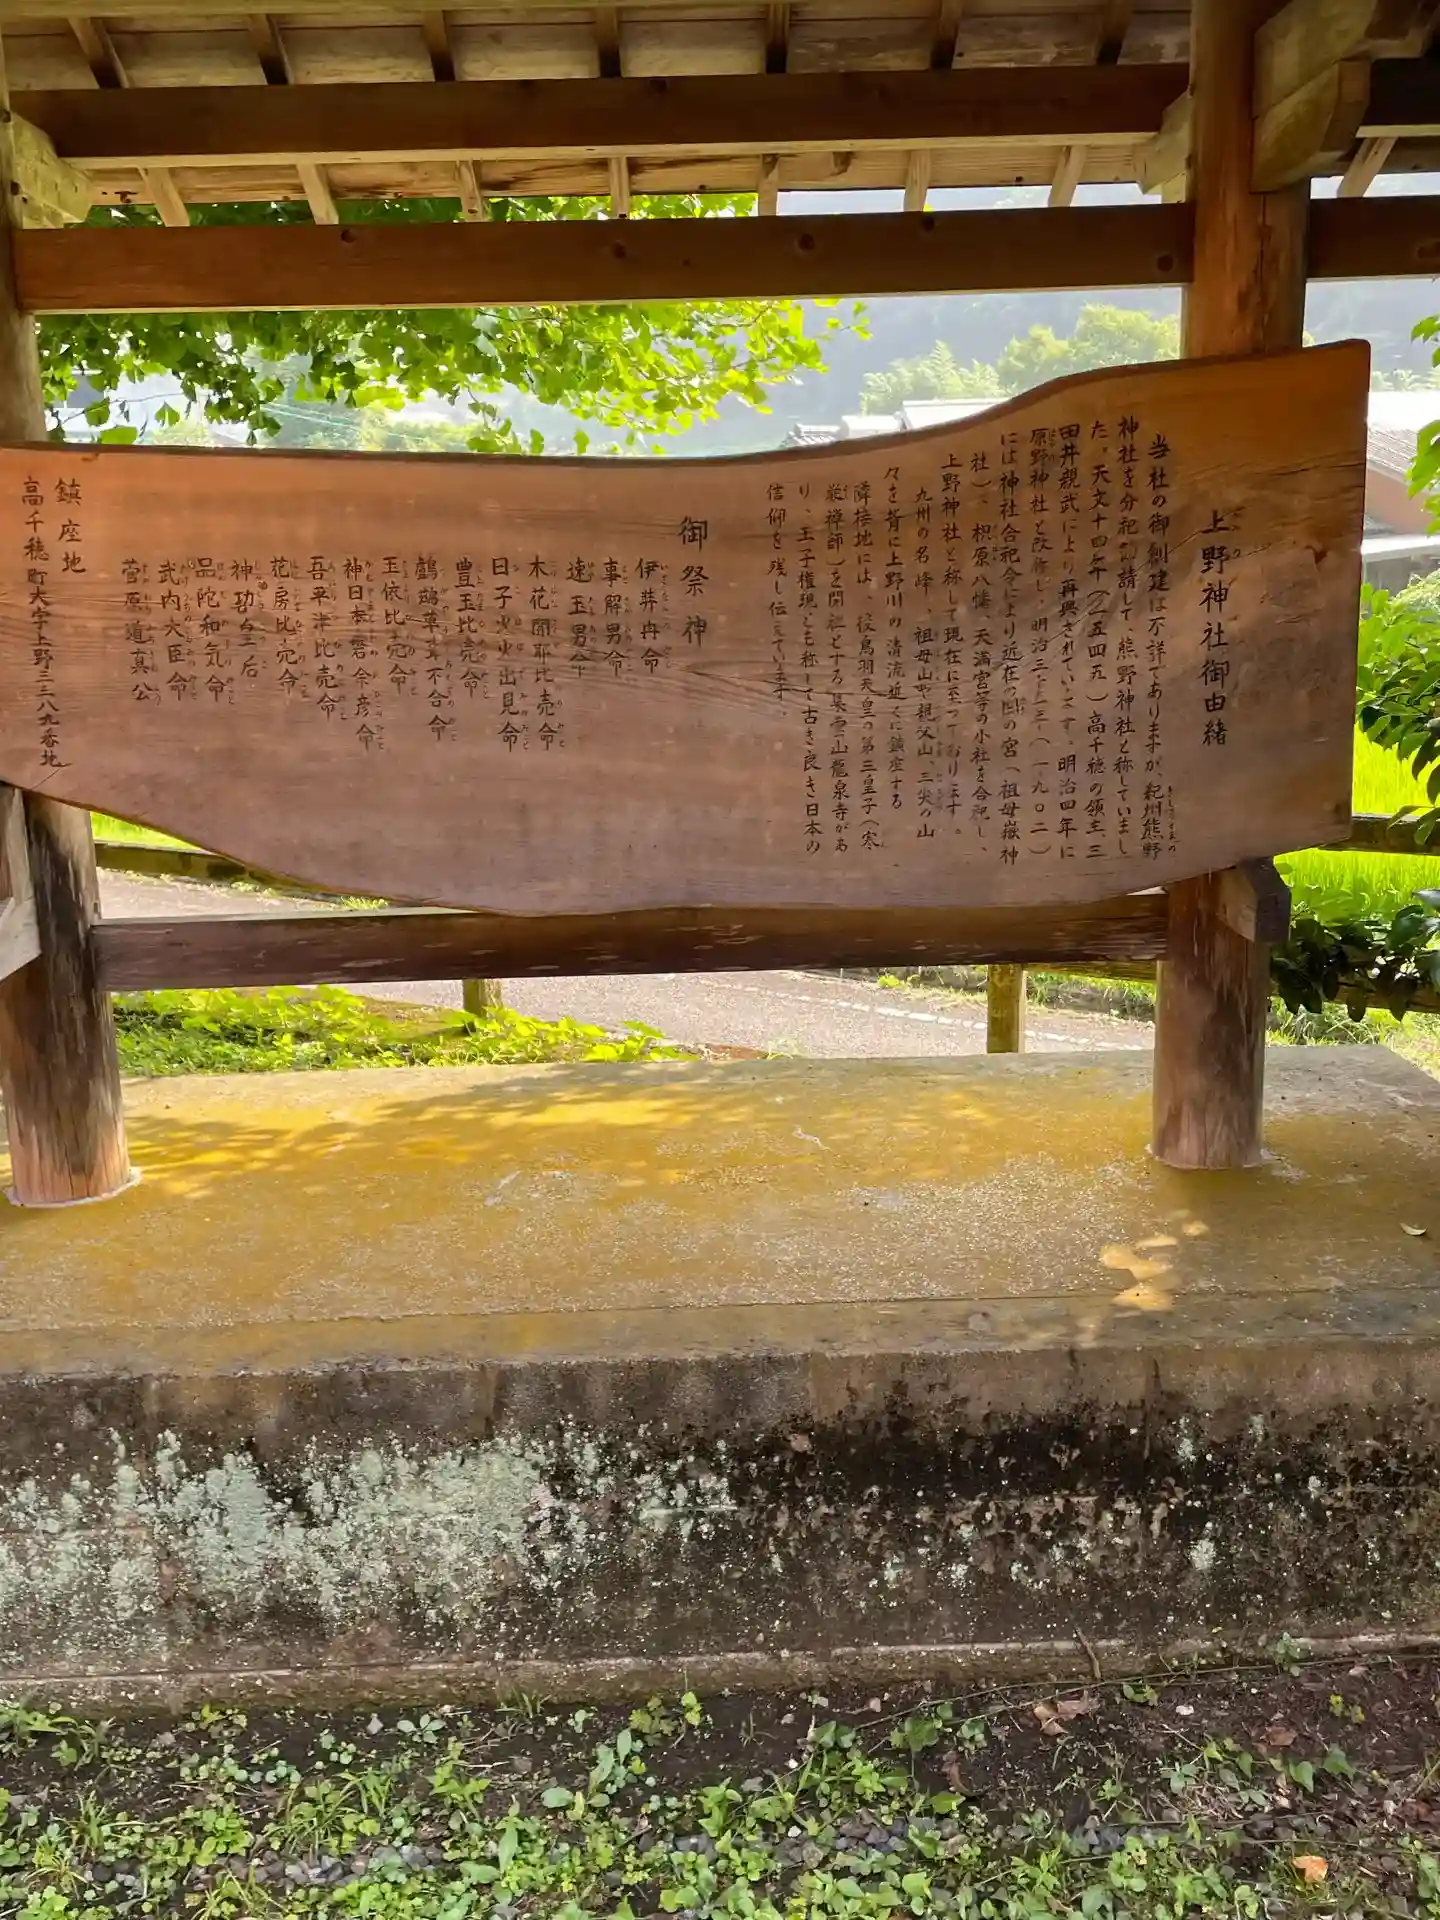 上野神社御由緒
当社の御創建は不詳でありますが、紀州熊野
神社を分祀勧請して、熊野神社と称していまし
た。天文十四年(一五四五)高千穂の領主、三
田井親武により再興されています。明治四年に
原野神社と改称し、明治三十三年(一九〇二)
には神社合祀令により近在の四の宮(祖母嶽神
社)、椥原八幡、天満宮等の小社を合祀し、
上野神社と称して現在に至っております。
九州の名峰、祖母山や親父山、三尖の山
々を背に上野川の清流近くに鎮座する
隣接地には、後鳥羽天皇の第三皇子(寒
巌禅師)を開祖とする 雲山龍泉寺があ
り、王子権現とも称して古き良き日本の
信仰を残し伝えています。
御祭神
伊弉冉命
事解男命
速玉男命
木花開耶比売命
日子火火出見命
豊玉比売命
鸕鷀草葺不合命
玉依比売命
神日本磐余彦命
吾平津比売命
花房比売命
神功皇后
品陀和気命
武内大臣命
菅原道真公
鎮座地
高千穂町大字上野三三八九番地